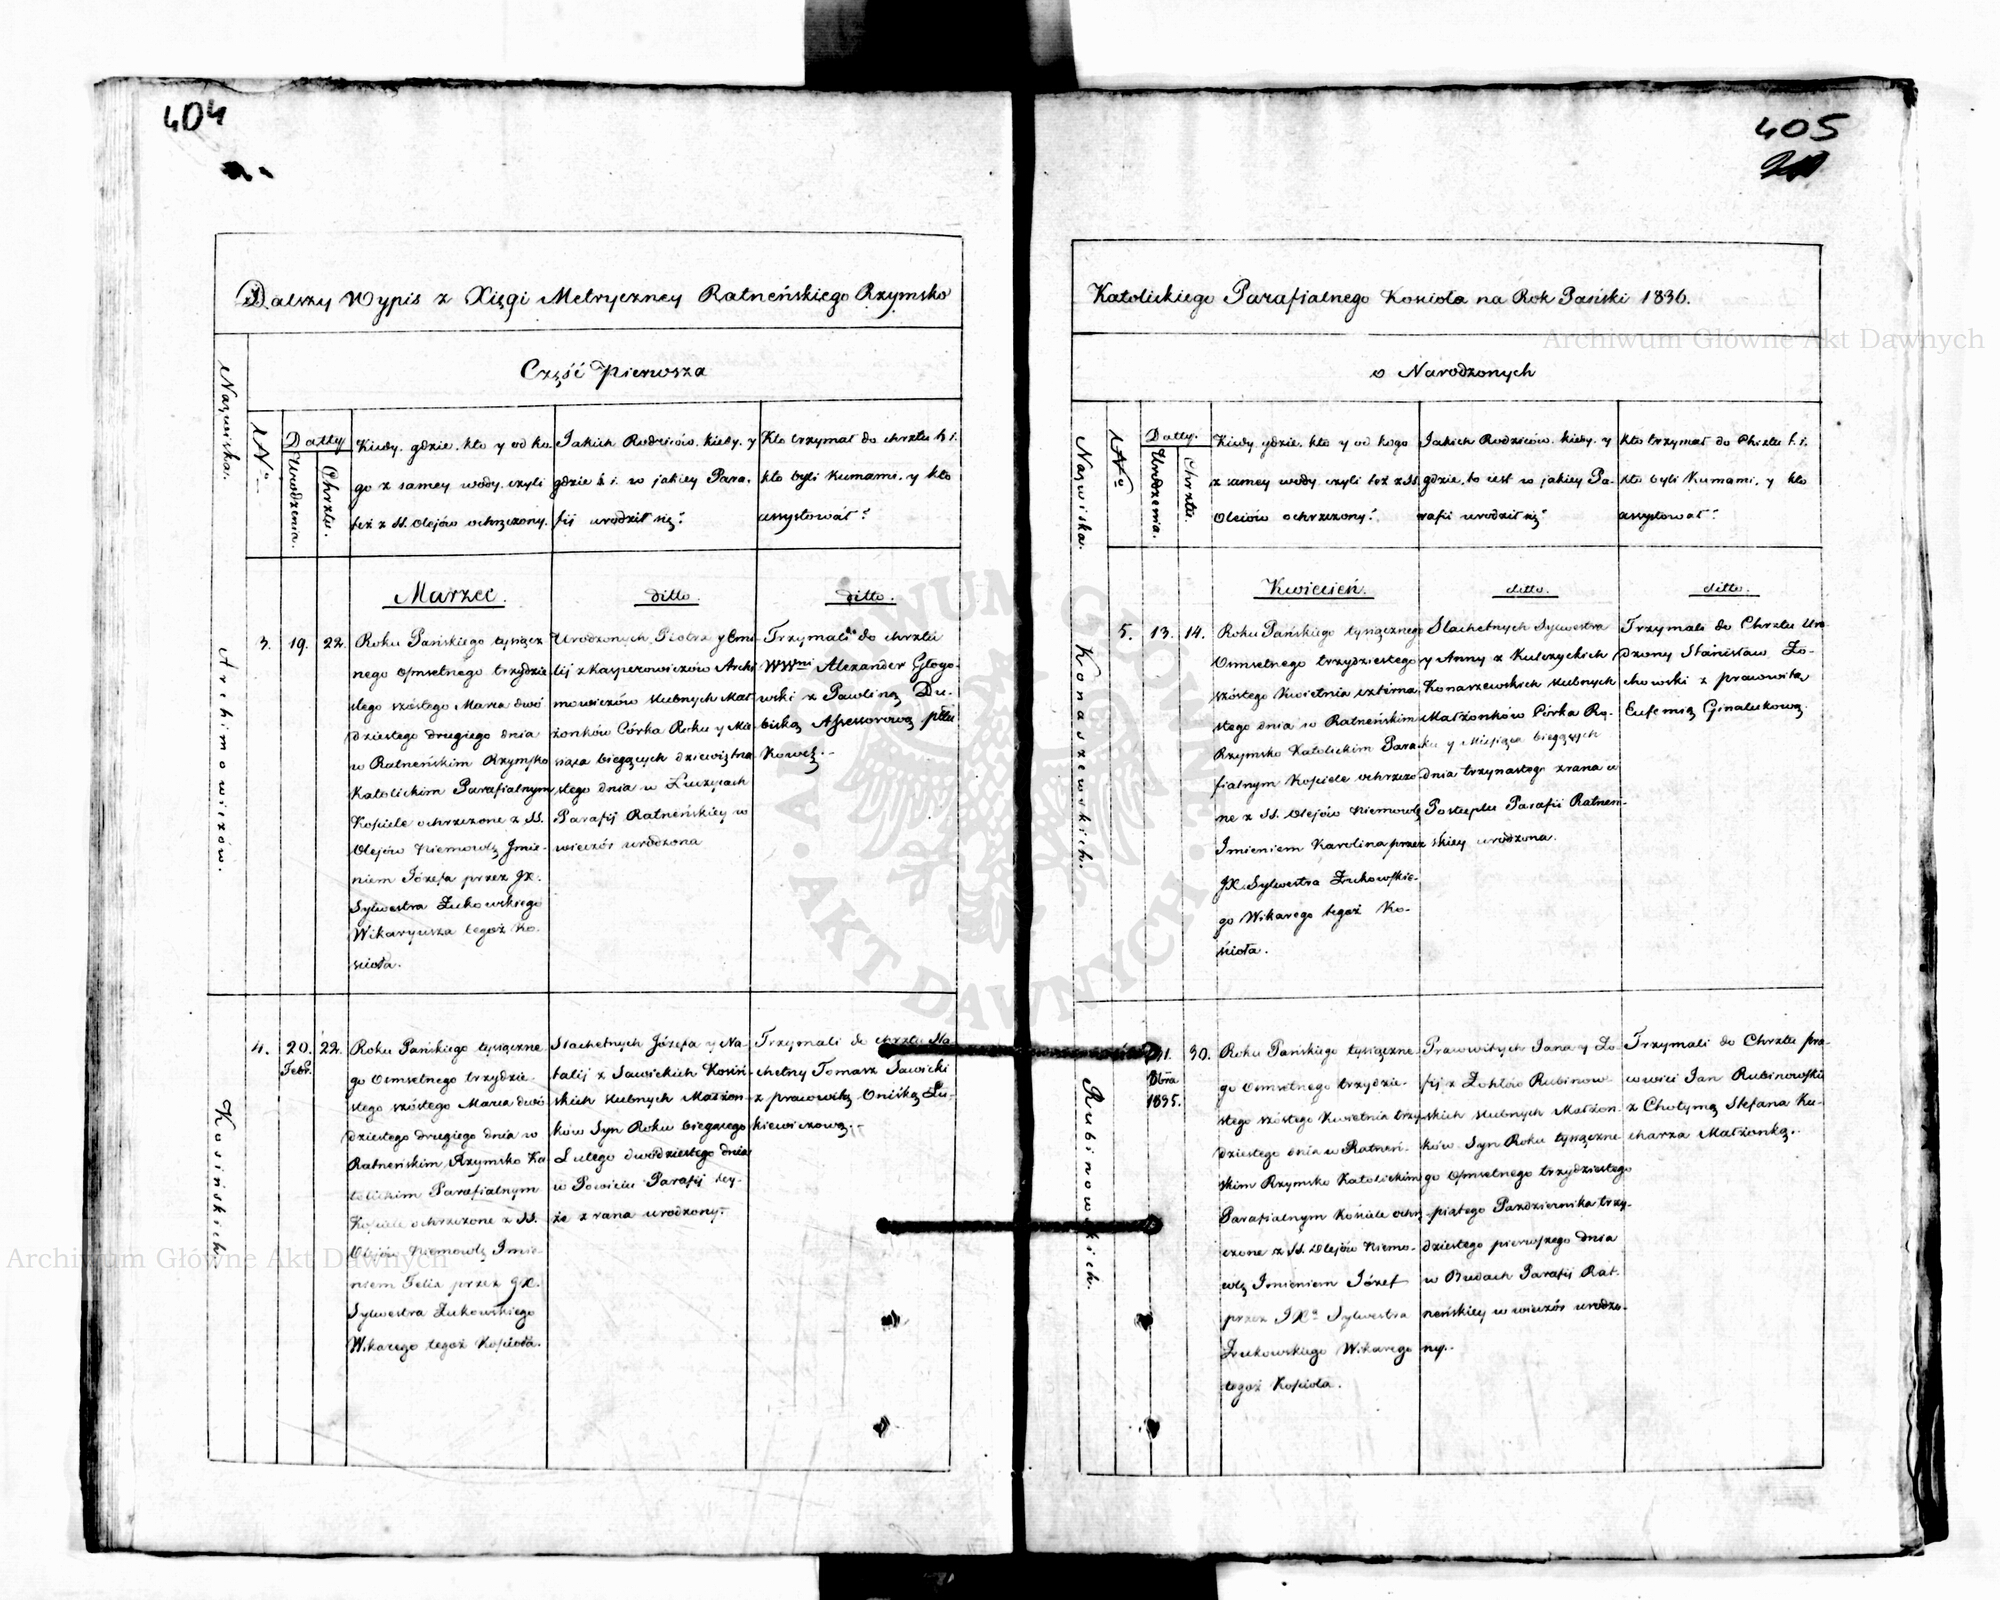 404
Dalszy Wypis z Xięgi Metryczney Ratneńskiego Rzymsko
Część Pierwsza
Nazwiska.
N°
Datty
Urodzenia.
Chrztu.
Kiedy, gdzie, kto y od ko
go z samey wody, czyli
też z SS. Olejów ochrzczony.
Jakich Rodziców, kiedy, y
gdzie t. i. w jakiey Para-
fij urodził się?
Kto trzymał do chrztu t. i.
kto byli Kumami, y kto
assystował?
Marzec.
ditto.
ditto.
Archimowiczów.
3.
19.
22.
Roku Pańskiego tysiącz
nego ośmsetnego trzydzie
stego szóstego Marca dwó
dziestego drugiego dnia
w Ratneńskim Rzymsko
Katolickim Parafialnym
Kościele ochrzczone z SS.
Olejów Niemowlę Jmie-
niem Józefa przez JX.
Sylwestra Żukowskiego
Wikaryusza tegoż Ko-
ścioła.
Urodzonych Piotra y Emi
lij z Kasperowiczów Archi
mowiczów ślubnych Mał
żonków Córka Roku y Mie
siąca bieżących dziewiętna
stego dnia w
Parafij Ratneńskiey w
wieczór urodzona
Trzymali do chrztu
WWni Alexander Głogo-
wski z Pauliną Du-
biską Assessorową
4.
20.
Febr.
22.
Kosińskich.
Roku Pańskiego tysiączne
go Osmsetnego trzydzie-
stego szóstego Marca dwó
dziestego drugiego dnia w
Ratneńskim Rzymsko Ka
tolickim Parafialnym
Kościele ochrzczone z SS.
Olejów Niemowlę Jmie-
niem Felix przez JX.
Sylwestra Żukowskiego
Wikarego tegoż Kościoła.
Slachetnych Józefa y Na-
talij z Sawickich Kosiń-
skich ślubnych Małżon-
ków Syn Roku bieżącego
Lutego dwódziestego dnia
w Powiciu Parafij
że z rana urodzony.
Trzymali do chrztu
chetny Tomasz Sawicki
z prawowitą Oniśką Łu-
kiewiczową.
405
Katolickiego Parafialnego Kościoła na Rok Pański 1836.
o Narodzonych
Nazwiska.
N°
Datty.
Urodzenia.
Chrztu.
Kiedy, gdzie, kto y od kogo
z samey wody, czyli też z SS.
Olejów ochrzczony?
Jakich Rodziców, kiedy, y
gdzie, to iest w jakiey Pa-
rafii urodził się?
Kto trzymał do Chrztu t. i.
kto byli Kumami, y kto
assystował?
Kwiecień.
ditto.
ditto.
Konaszewskich.
5.
13.
14.
Roku Pańskiego tysiącznego
Osmsetnego trzydziestego
szóstego Kwietnia czterna
stego dnia w Ratneńskim
Rzymsko Katolickim Para
fialnym Kościele ochrzczo-
ne z SS. Olejów Niemowlę
Imieniem Karolina przez
JX. Sylwestra Żukowskie-
go Wikarego tegoż Ko-
ścioła.
Slachetnych Sylwestra
y Anny z Kulczyckich
Konaszewskich ślubnych
Małżonków Córka Ro-
ku y Miesiąca bieżących
dnia trzynastego zrana w
Postuplu Parafii Ratnen-
skiey urodzona.
Trzymali do Chrztu Uro
dzony Stanisław Żo-
chowski z prawowitą
Eufemią Ginalukową.
31.
8bra
1835.
30.
Rubinowskich.
Roku Pańskiego tysiączne
go Osmsetnego trzydzie-
stego szóstego Kwietnia trzy
dziestego dnia w Ratneń-
skim Rzymsko Katolickim
Parafialnym Kościele ochrz
czone z SS. Olejów Niemo-
wlę Imieniem Józef
przez JXa Sylwestra
Żukowskiego Wikarego
tegoż Kościoła.
Prawowitych Jana y Zo-
fij z Rubinow
skich ślubnych Małżon-
ków Syn Roku tysiączne
go Ośmsetnego trzydziestego
piątego Października trzy-
dziestego pierwszego dnia
w Budach Parafij Rat-
neńskiey w wieczór urodzo-
ny.
Trzymali do Chrztu pra-
wowici Jan Rubinowski
z Chotymą Stefana Ku-
charza Małżonką.
Archiwum Główne Akt Dawnych
Archiwum Główne Akt Dawnych